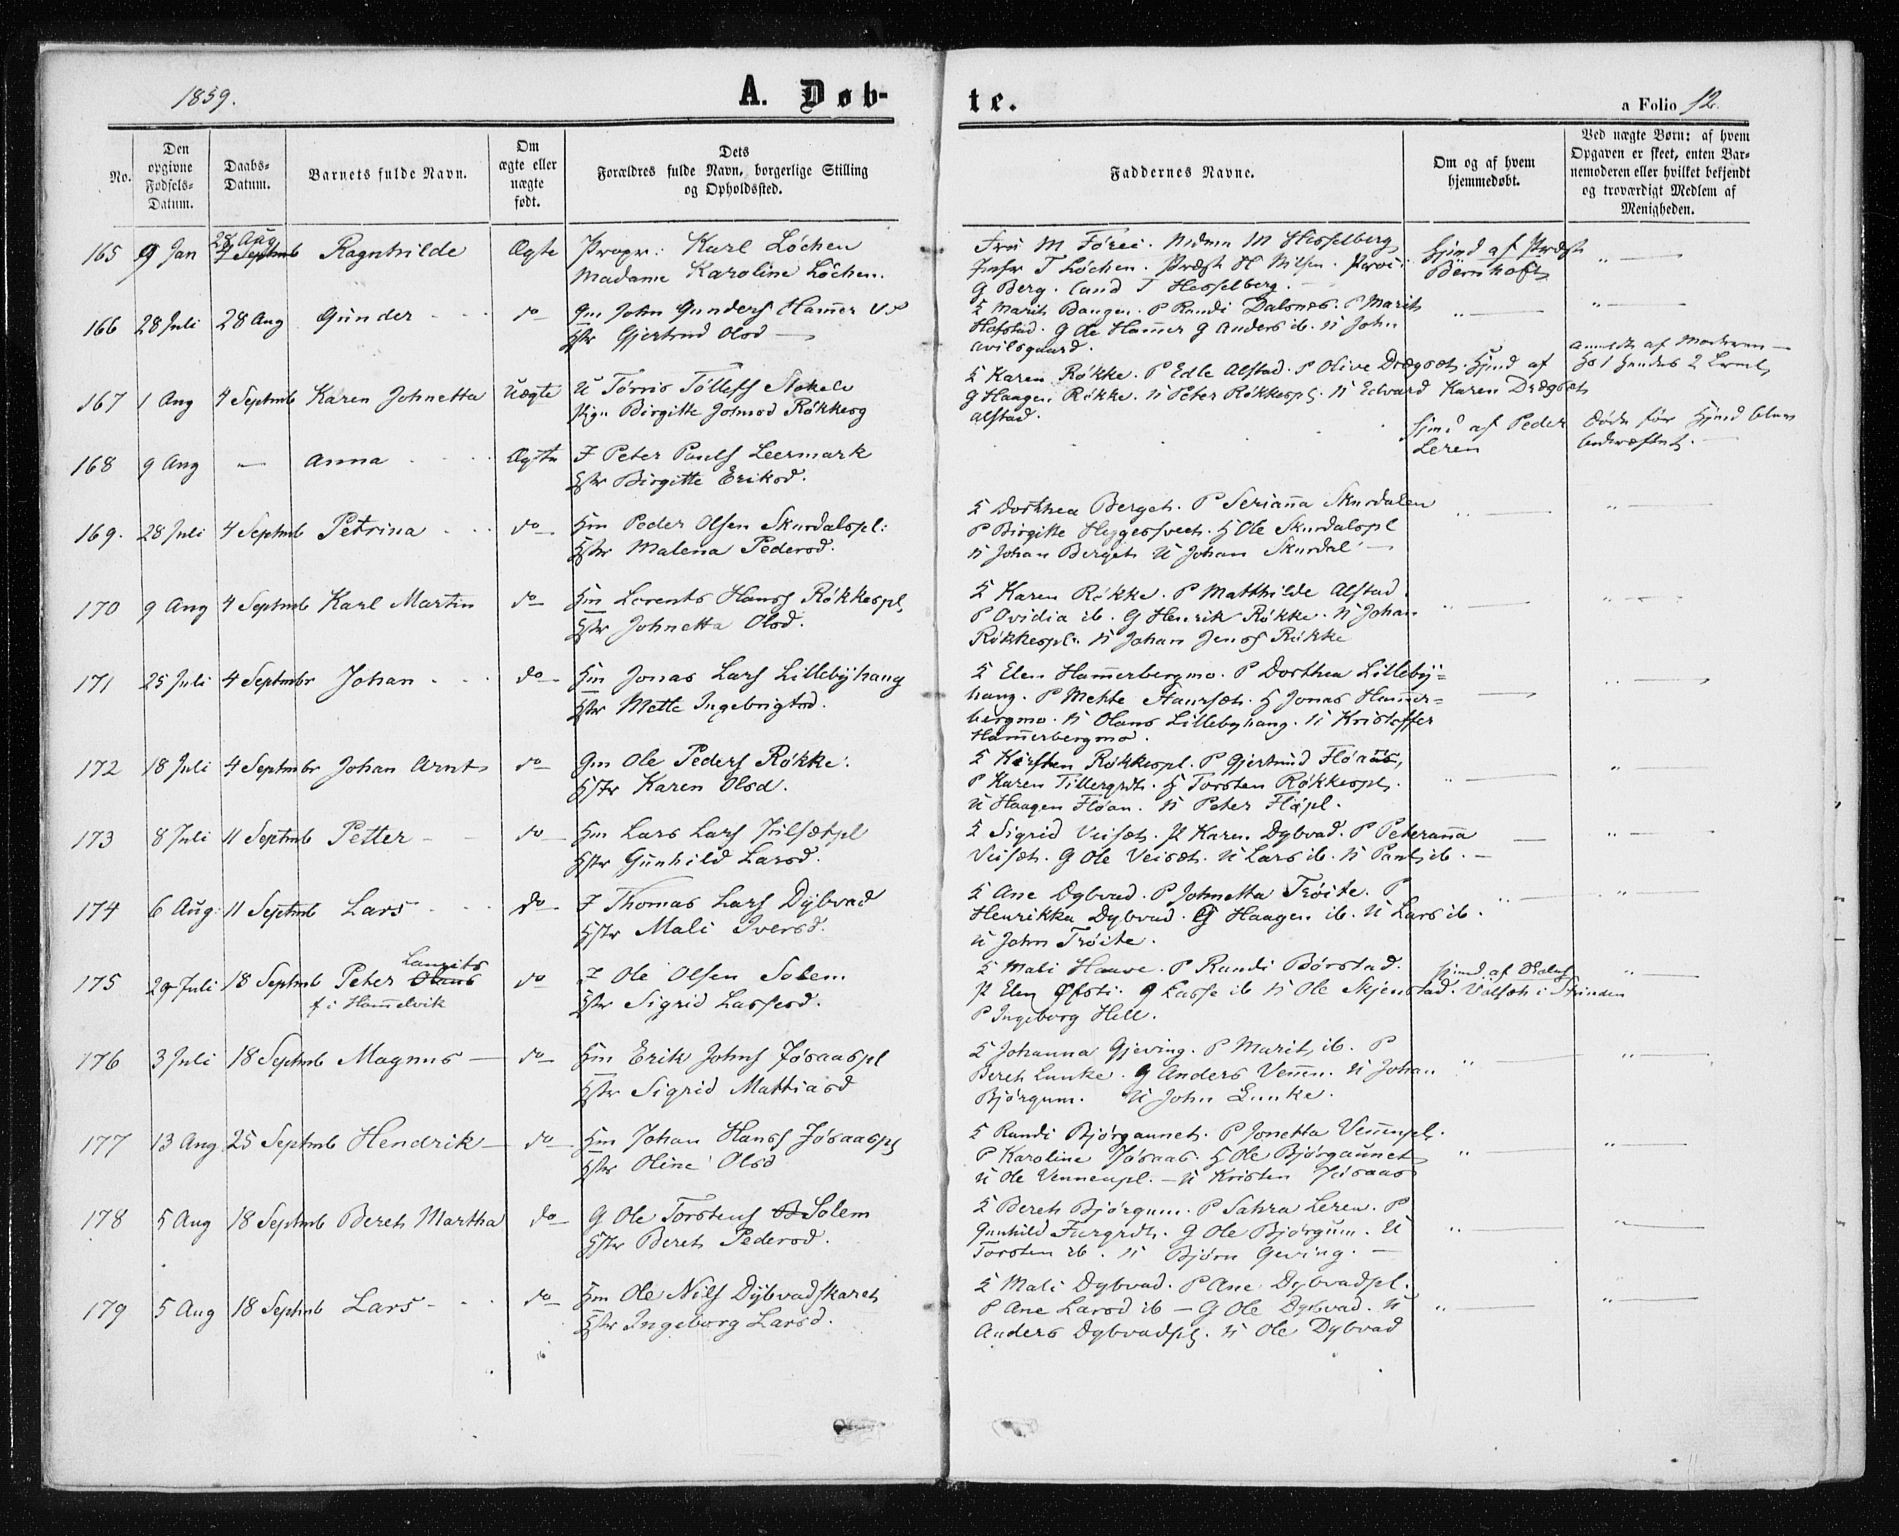 1859.
A. Døb-
No.
Den opgivne Fødsels-Datum.
Daabs-Datum.
Barnets fulde Navn.
Om ægte eller uægte født.
Dets Forældres fulde Navn, borgerlige Stilling og Opholdssted.
te.
a Folio 12.
Faddernes Navne.
Om og af hvem hjemmedøbt.
Ved uægte Børn: af hvem Opgaven er skeet, enten Barnemoderen eller hvilket bekjendt og troværdigt Medlem af Menigheden.
165 9 Jan 28 Aug 4 Septmb Ragnhilde Ægte Propr: Karl Löchen
Madame Karoline Löchen.
Hjmd af Præst
G Berg. Cand T Hesselberg.
166 28 Juli 28 Aug Gunder do Gm John Gunders Hammer
Hstr Gjertrud Olsd
K Marit Bangen. P Randi Dalsnes. P Marit
Hofstad. G Ole Hammer G Anders ib. U John
Avilsgaard.
167 1 Aug 4 Septmb Karen Johnetta Uægte U Törris Tölless Stokke
Pign Birgitte Rökkesg
K Karen Rökke. P Edle Alstad. P Olive Drægset. Hjmd af
G Haagen Rökke. U Peter Rökkespl. U Edvard Karen Drægset
Alstad.
168 9 Aug — Anna Ægte I Peter Pauls Leermark
Hstr Birgitte Eriksd.
Hjmd af Peder
Leren
Døde før Hjmd blev
bekræftet.
169. 28 Juli 4 Septmb Petrina do Hm Peder Olsen Skurdalspl:
Hstr Malena Pedersd.
K Dorthea Berget. P Serianna Skurdalen
P Birgitte H Ole Skurdalspl
U Johan Berget U Johan Skurdal
170 9 Aug 4 Septmb Karl Martin do Hm Lorents Hanss Rökkespl
Hstr Johnetta Olsd.
K Karen Rökke. P Matthilde Alstad
P Ovidia ib. G Henrik Rökke. U Johan
Rökkespl. U Johan Jenss Rökke
171 25 Juli 4 Septmbr Johan do Hm Jonas Lars Lillebyhaug
Hstr Mette Ingebrigtsd.
K Elen Hammerbergmo. P Dorthea Lilleby=
haug. P Mehte H Jonas Hammer=
bergmo. U Olaus Lillebyhaug. U Kristoffer
Hammerbergmo.
172 18 Juli 4 Septmbr Johan Arnt do Gm Ole Peders Rökke.
Hstr Karen Olsd.
K Kirsten Rökkespl. P Gjertrud
P Karen H Torsten Rökkespl.
U Haagen Flöan. U Peter
173 8 Juli 11 Septmb Petter do Hm Lars Lars
Hstr Gunhild Larsd.
K Sigrid Veiset. P Karen Dybvad. P Peteranna
Veiset. G Ole Veiset. U Lars ib. U Paul ib.
174 6 Aug. 11 Septmb Lars do I Thomas Lars Dybvad
Hstr Mali Iversd.
K Ane Dybvad. P Johnetta Tröite. P
Henrikka Dybvad. G Haagen ib. U Lars ib.
U John Tröite.
175 29 Juli 18 Septmb Peter Olaus Laurits do I Ole Olsen Solem
f. i Hammelvik Hstr Sigrid Lassesd.
K Mali Hauve. P Randi Börstad. Hjmd af
P Elen Öfsti. G Lasse ib U Ole Skjenstad. i Strinden
P Ingeborg Hell.
176 3 Juli 18 Septmb Magnus do Hm Erik Johns Jösaaspl
Hstr Sigrid Mattiasd
K Johanna Gjeving. P Marit ib. P
Beret Lunke. G Anders U Johan
Bjørgum. U John Lunke.
177 13 Aug 25 Septmb Hendrik do Hm Johan Hanss Jösaaspl
Hstr Oline Olsd
K Randi Bjørgaunet. P Jonetta
P Karoline Jösaas. H Ole Bjørgaunet
U Ole Vennenpl. U Kristen Jösaas
178 5 Aug 18 Septmb Beret Martha do G Ole Torstens Solem
Hstr Beret Pedersd.
K Beret Bjørgum. P Sahra Leren. P
Gunhild G Ole Bjørgum. U
Torsten ib. U Bjørn Geving.
179 5 Aug 18 Septmb Lars do Hm Ole Nils Dybvadskaret
Hstr Ingeborg Larsd.
K Mali Dybvad. P Ane Dybvadpl.
P Ane Larsd ib G Ole Dybvad. U
Anders Dybvadpl. U Ole Dybvad